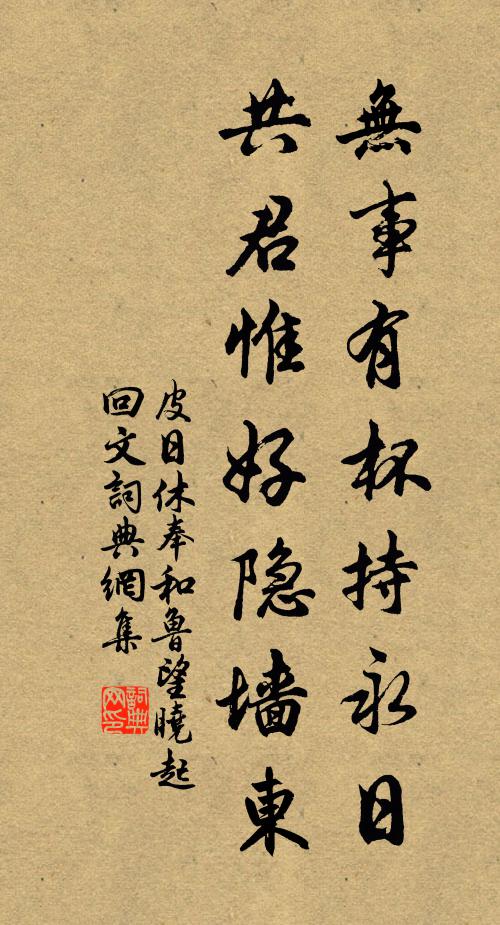 無事有杯持永日
共君惟好隐墙東
皮日休奉和魯望曉起
回文詞典網集
詞典网印